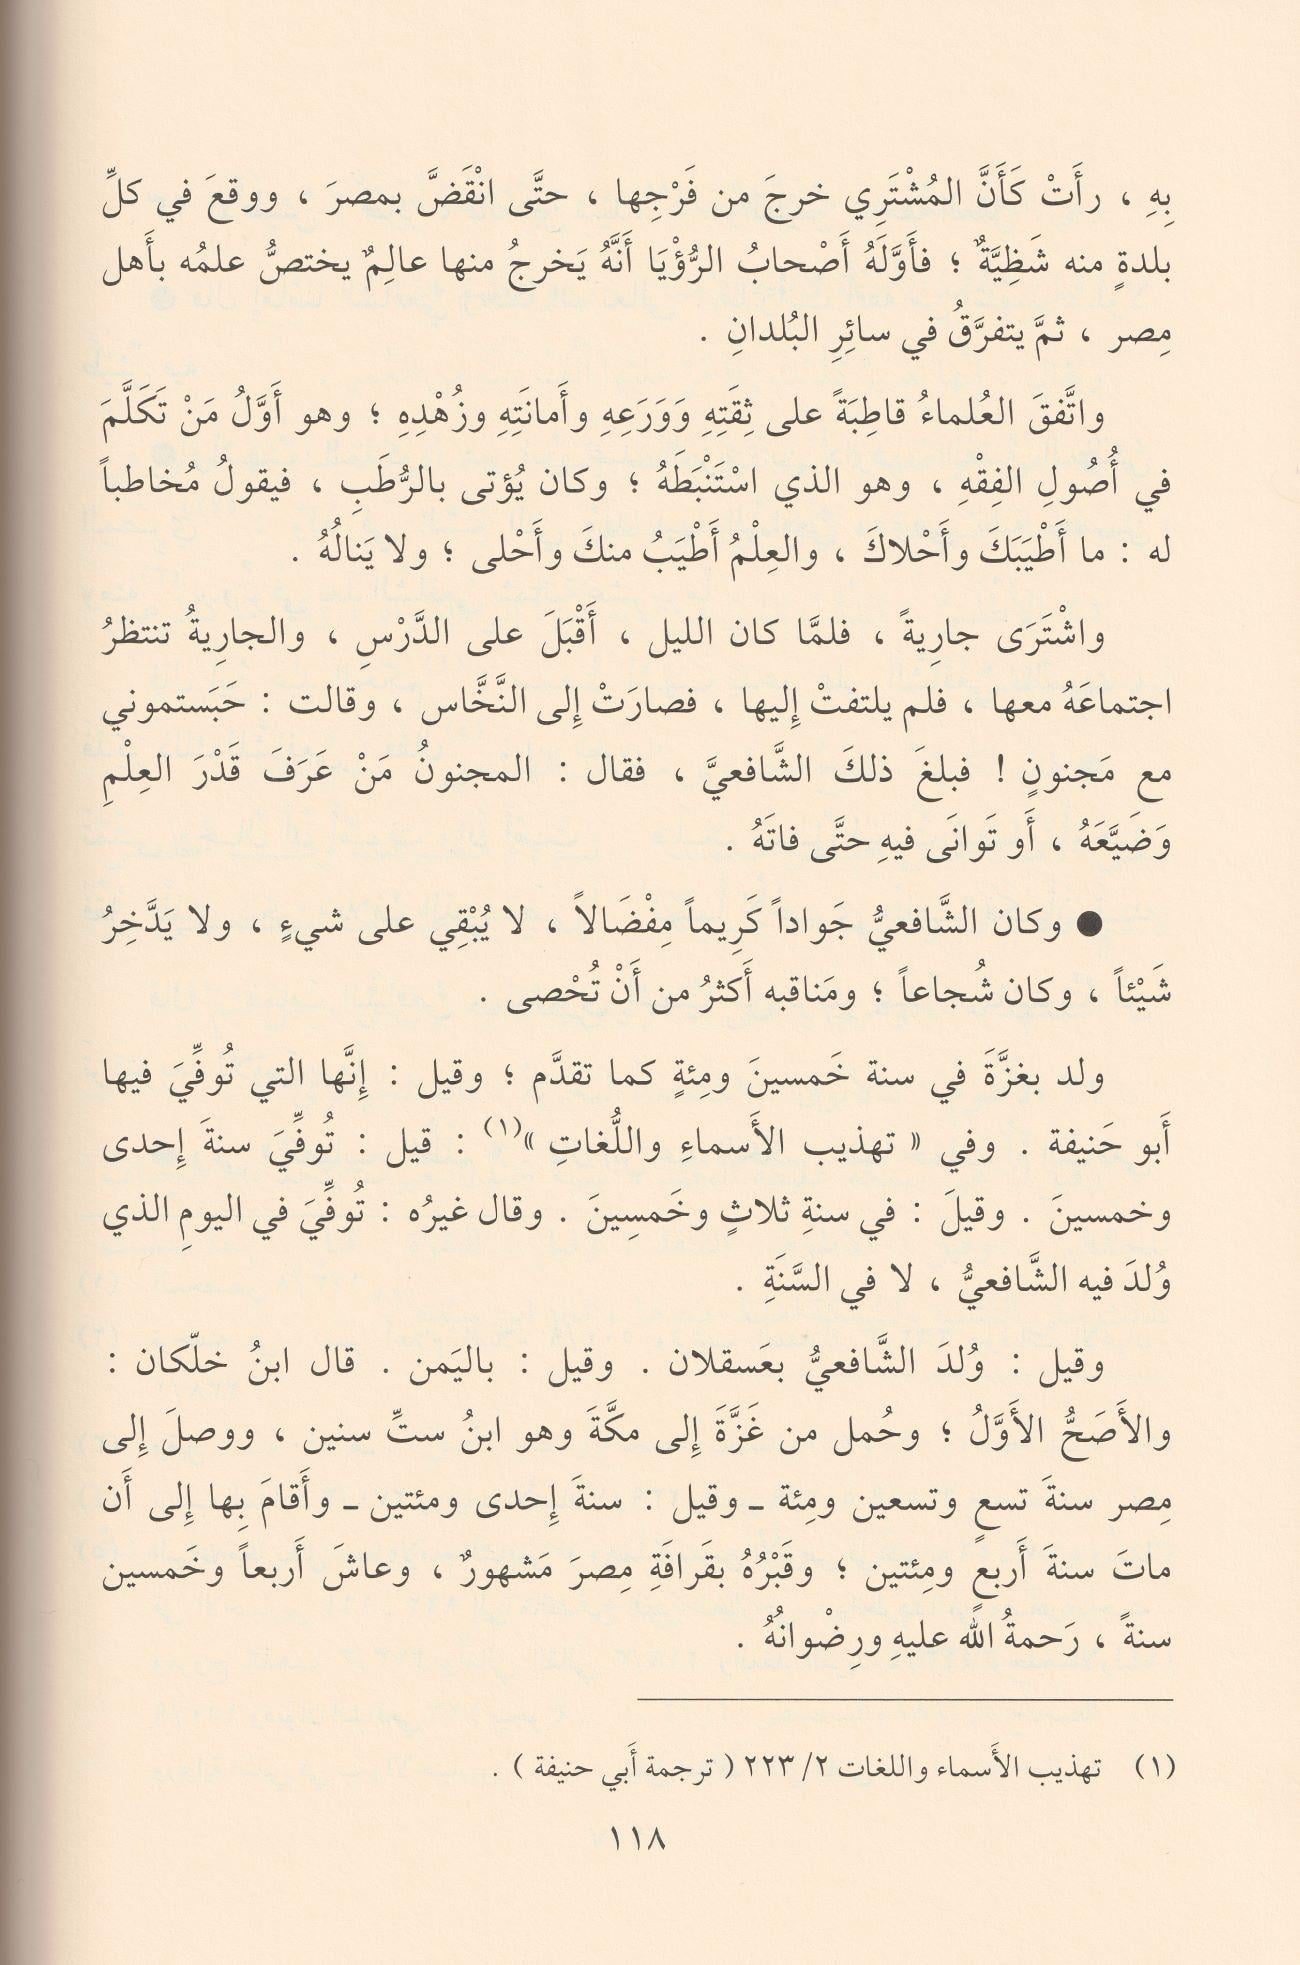 بِهِ ، رأَتْ كَأَنَّ المُشْتَرِي خرجَ من فَرْجِها ، حتَّى انْقَضَّ بمصرَ ، ووقعَ في كلِّ
بلدةٍ منه شَظِيَّةٌ ؛ فأَوَّلَهُ أَصْحابُ الرُّؤْيَا أَنَّهُ يَخرجُ منها عالِمٌ يختصُّ علمُه بأَهل
مِصر ، ثمَّ يتفرَّقُ في سائِرِ البُلدانِ .
واتَّفقَ العُلماءُ قاطِبَةً على ثِقَتِهِ وَوَرَعِهِ وأَمانَتِهِ وزُهْدِهِ ؛ وهو أَوَّلُ مَنْ تَكَلَّمَ
في أُصُولِ الفِقْهِ ، وهو الذي اسْتَنْبَطَهُ ؛ وكان يُؤتى بالرُّطَبِ ، فيقولُ مُخاطباً
له : ما أَطْيَبَكَ وأَحْلاكَ ، والعِلْمُ أَطْيَبُ منكَ وأَحْلى ؛ ولا يَنالُهُ .
واشْتَرَى جارِيةً ، فلمَّا كان الليل ، أَقْبَلَ على الدَّرْسِ ، والجارِيةُ تنتظرُ
اجتماعَهُ معها ، فلم يلتفتْ إِليها ، فصارَتْ إِلى النَّخَّاس ، وقالت : حَبَستموني
مع مَجنونٍ ! فبلغَ ذلكَ الشَّافعيَّ ، فقال : المجنونُ مَنْ عَرَفَ قَدْرَ العِلْمِ
وَضَيَّعَهُ ، أَو تَوانَى فيهِ حتَّى فاتَهُ .
● وكان الشَّافعيُّ جَواداً كَرِيماً مِفْضَالاً ، لا يُبْقِي على شيءٍ ، ولا يَدَّخِرُ
شَيْئاً ، وكان شُجاعاً ؛ ومَناقبه أَكثرُ من أَنْ تُحْصى .
ولد بغزَّةَ في سنة خَمسينَ ومِئةٍ كما تقدَّم ؛ وقيل : إِنَّها التي تُوفِّيَ فيها
أَبو حَنيفة . وفي « تهذيب الأَسماءِ واللُّغاتِ »(١) : قيل : تُوفِّيَ سنةَ إِحدى
وخمسينَ . وقيلَ : في سنةِ ثلاثٍ وخَمسِينَ . وقال غيرُه : تُوفِّيَ في اليومِ الذي
وُلدَ فيه الشَّافعيُّ ، لا في السَّنَةِ .
وقيل : وُلدَ الشَّافعيُّ بعَسقلان . وقيل : باليَمن . قال ابنُ خلّكان :
والأَصَحُّ الأَوَّلُ ؛ وحُمل من غَزَّةَ إِلى مكَّةَ وهو ابنُ ستِّ سنين ، ووصلَ إِلى
مِصر سنةَ تسعٍ وتسعين ومِئة ـ وقيل : سنةَ إِحدى ومئتين ـ وأَقامَ بِها إِلى أَن
ماتَ سنةَ أَربعٍ ومِئتين ؛ وقَبْرُهُ بقَرافَةِ مِصرَ مَشهورٌ ، وعاشَ أَربعاً وخَمسين
سنةً ، رَحمةُ الله عليهِ ورِضْوانُهُ .
(١) تهذيب الأَسماء واللغات ٢/ ٢٢٣ ( ترجمة أَبي حنيفة ) .
١١٨